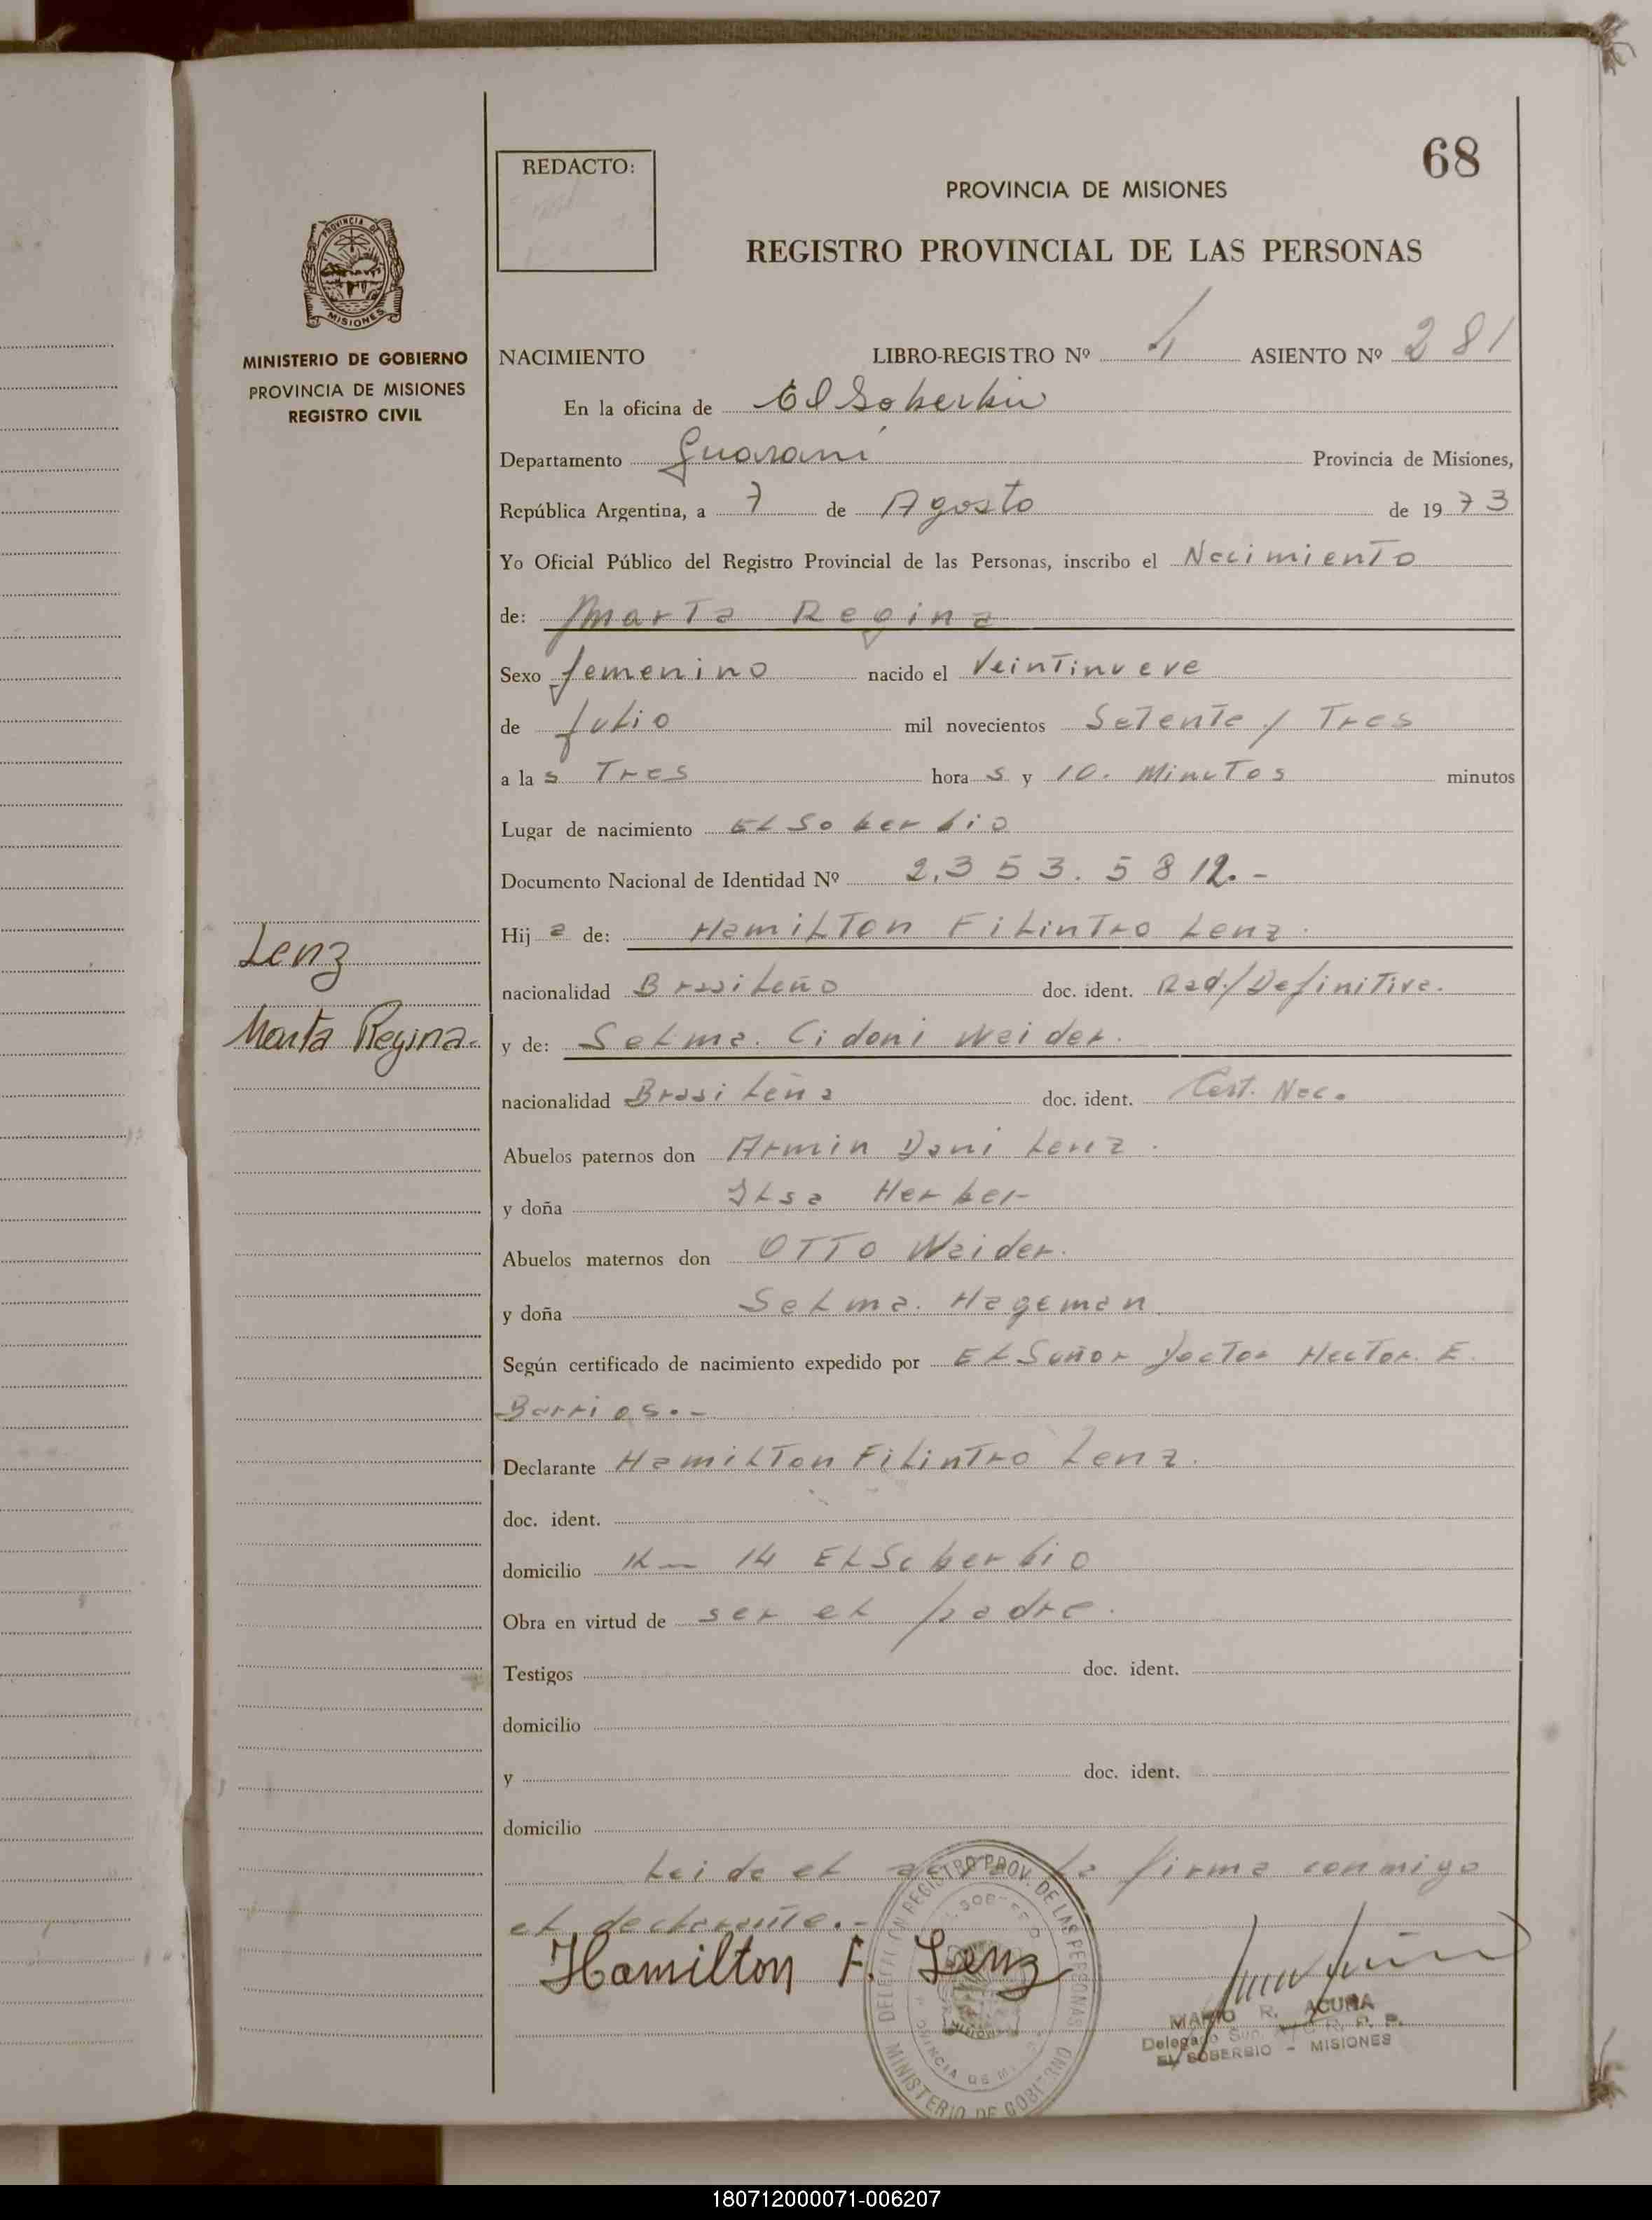 68
REDACTO:
PROVINCIA DE MISIONES
REGISTRO PROVINCIAL DE LAS PERSONAS
PROVINCIA DE
MISIONES
MINISTERIO DE GOBIERNO
PROVINCIA DE MISIONES
REGISTRO CIVIL
NACIMIENTO LIBRO-REGISTRO Nº 4 ASIENTO Nº 281
En la oficina de El Soberbio
Departamento Guaraní Provincia de Misiones,
República Argentina, a 7 de Agosto de 1973
Yo Oficial Público del Registro Provincial de las Personas, inscribo el Nacimiento
de: Marta Regina
Sexo femenino nacido el Veintinueve
de Julio mil novecientos Setenta y Tres
a las Tres horas y 10. Minutos minutos
Lugar de nacimiento El Soberbio
Documento Nacional de Identidad Nº
Hija de: Hamilton Filintro Lenz.
nacionalidad Brasileño doc. ident. Rad./Definitiva.
y de: Selma. Cidoni Weider.
nacionalidad Brasileña doc. ident. Cert. Nac.
Abuelos paternos don Armin Dani Lenz.
y doña Ilsa Herber
Abuelos maternos don Otto Weider.
y doña Selma. Hageman
Según certificado de nacimiento expedido por El Señor Doctor Hector. E.
Barrios.-
Declarante Hamilton Filintro Lenz.
doc. ident.
domicilio 14 El Soberbio
Obra en virtud de ser el padre.
Testigos doc. ident.
domicilio
y doc. ident.
domicilio
Leida el acta la firma conmigo
el declarante.-
Hamilton F. Lenz
Lenz
Marta Regina.
REGISTRO PROV. DE LAS PERSONAS
MINISTERIO DE GOBIERNO
MARIO R. ACUÑA
Delegado
EL SOBERBIO - MISIONES
180712000071-006207